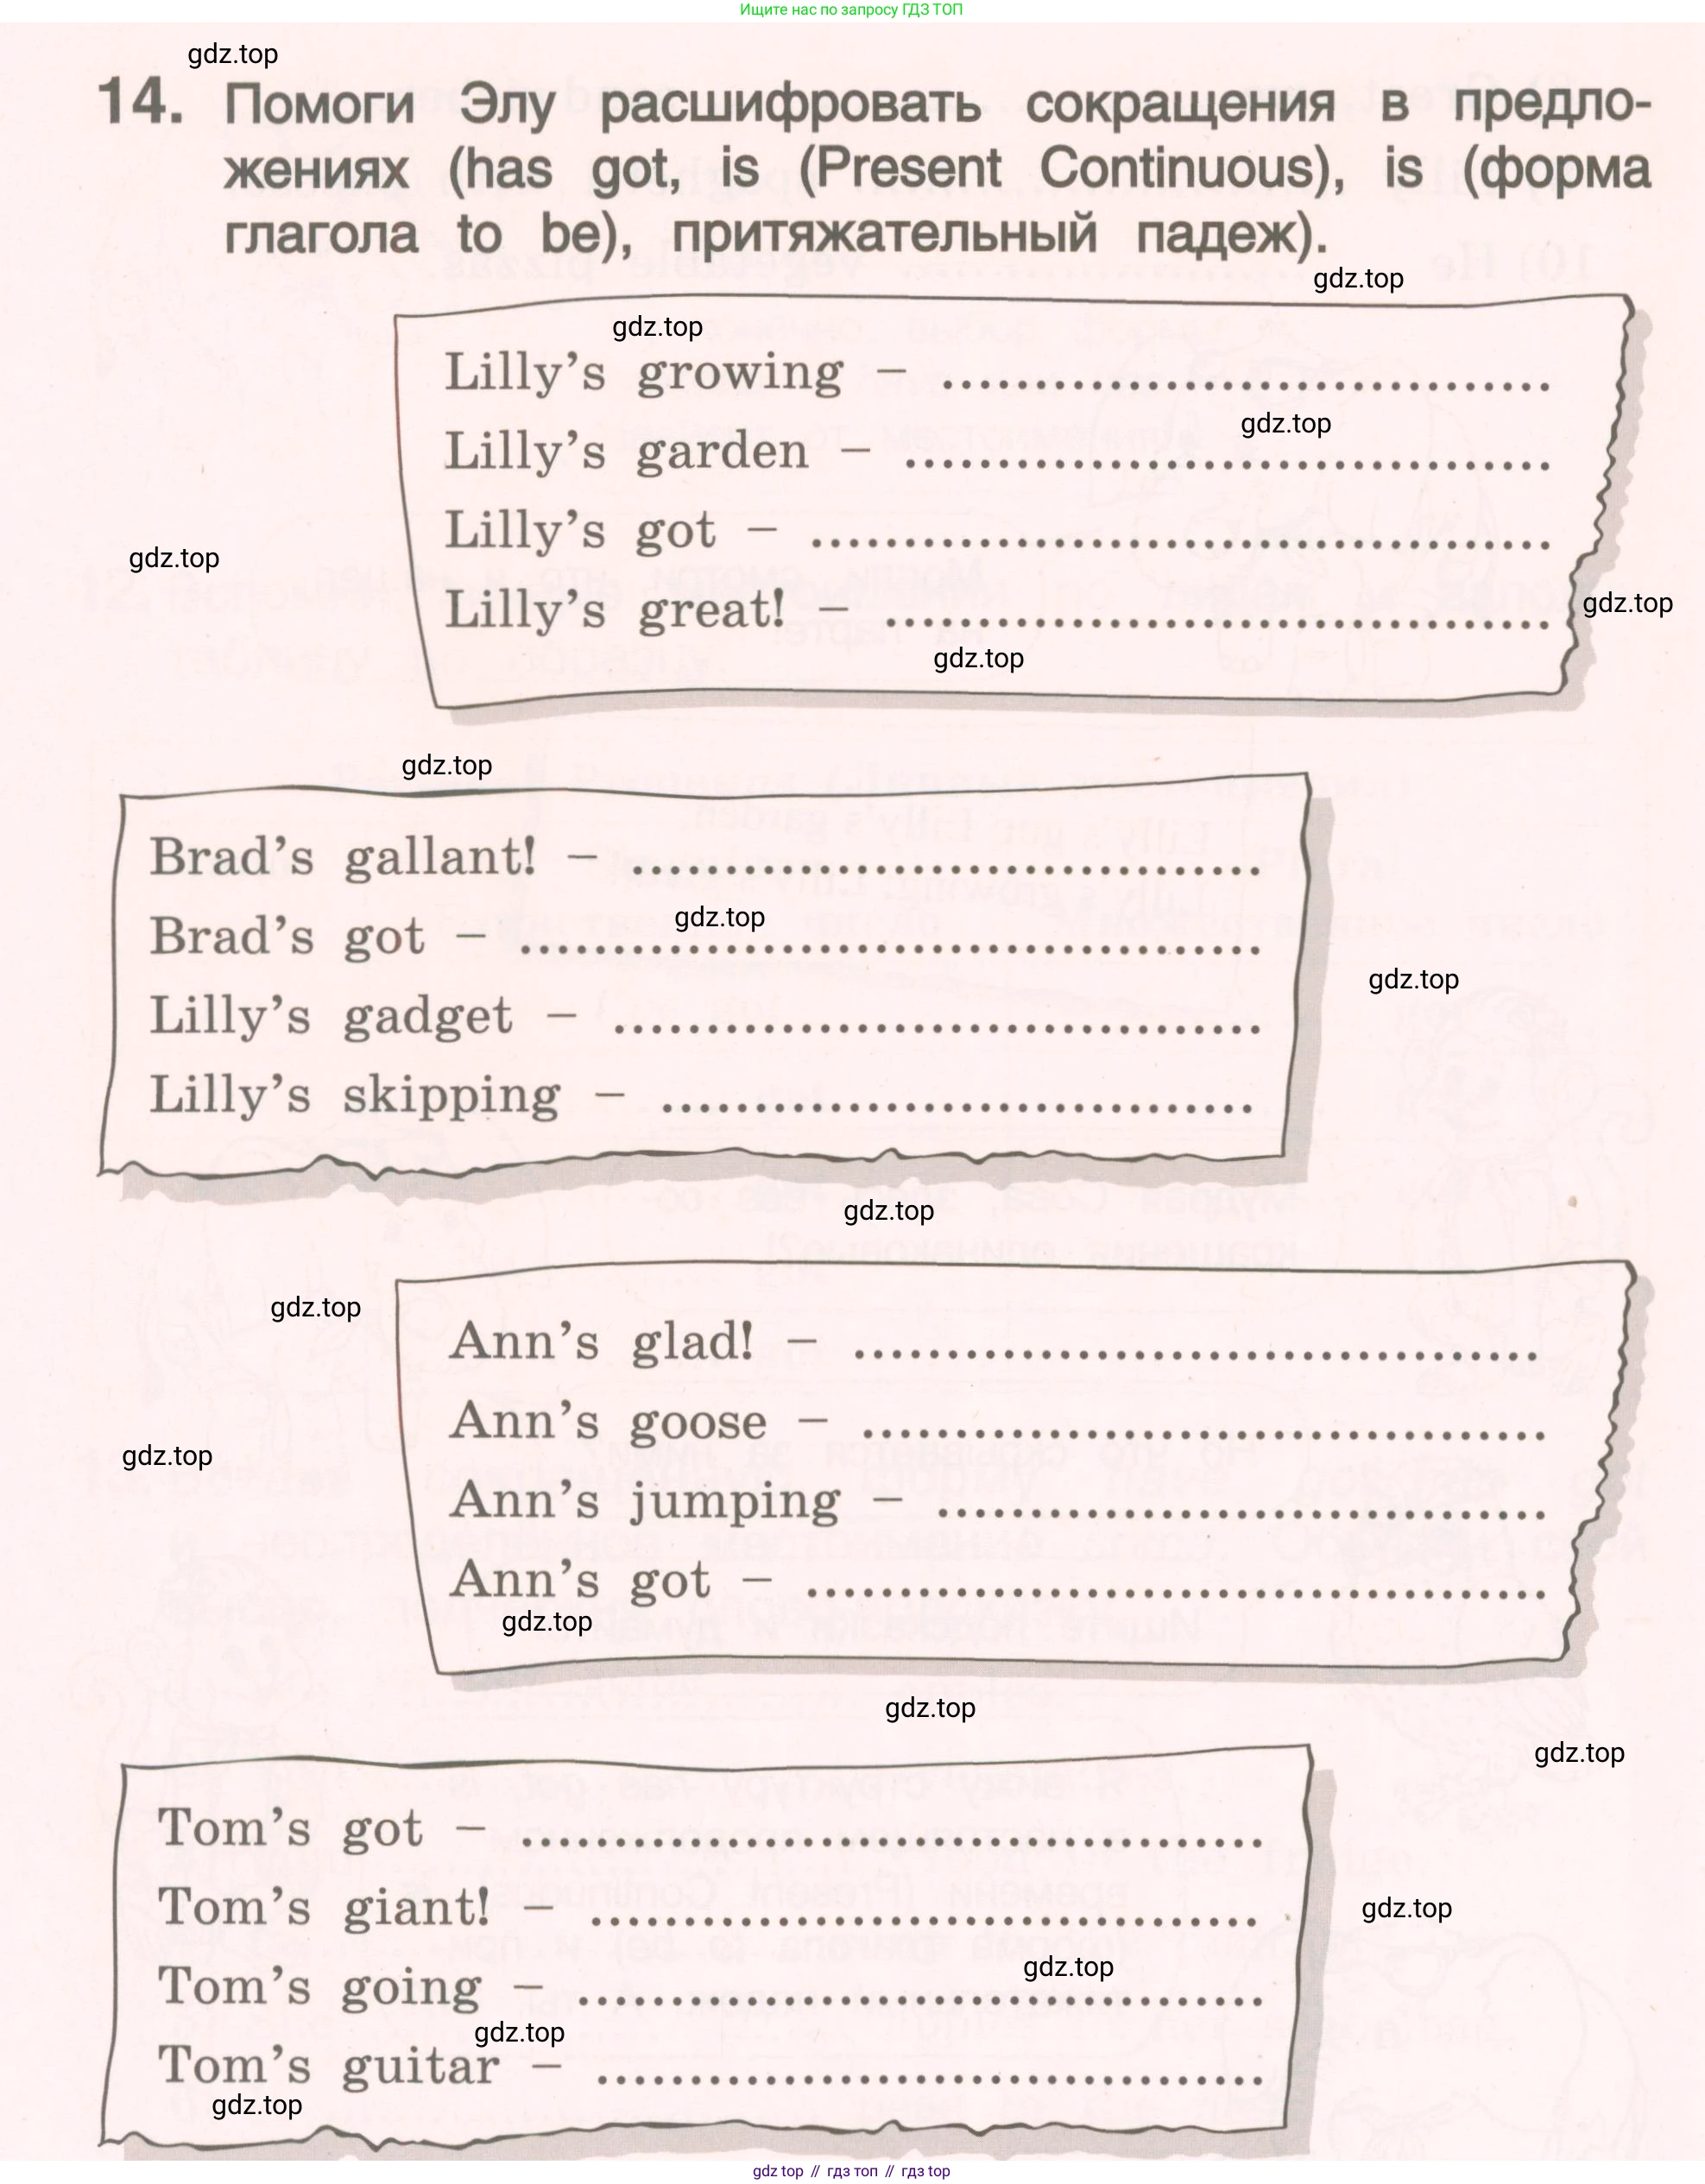 Ищите нас по запросу ГДЗ ТОП
gdz.top
14. Помоги Элу расшифровать сокращения в предло-
жениях (has got, is (Present Continuous), is (форма
глагола to be), притяжательный падеж).
gdz.top
gdz.top
Lilly’s growing – ..................................
gdz.top
Lilly’s garden – ..................................
Lilly’s got – ..................................
gdz.top
Lilly’s great! – ..................................
gdz.top
gdz.top
gdz.top
Brad’s gallant! – ..................................
gdz.top
Brad’s got – ..................................
gdz.top
Lilly’s gadget – ..................................
Lilly’s skipping – ..................................
gdz.top
gdz.top
Ann’s glad! – ..................................
Ann’s goose – ..................................
gdz.top
Ann’s jumping – ..................................
Ann’s got – ..................................
gdz.top
gdz.top
gdz.top
Tom’s got – ..................................
Tom’s giant! – ..................................
gdz.top
gdz.top
Tom’s going – ..................................
gdz.top
Tom’s guitar – ..................................
gdz.top
gdz top // гдз топ // гдз top